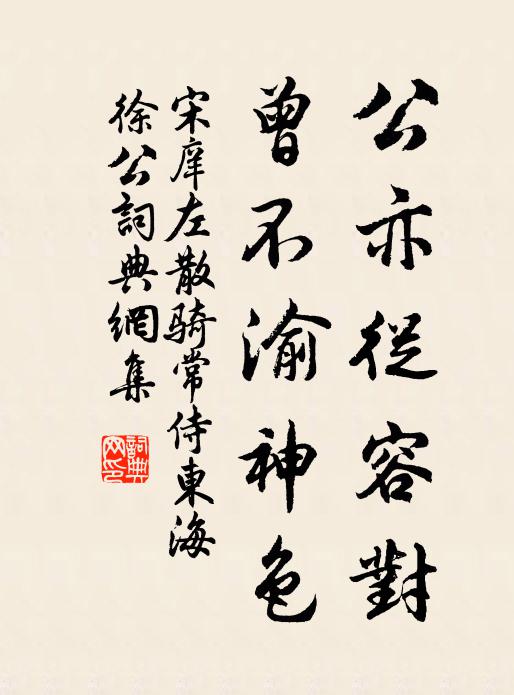 公亦從容對
曾不渝神色
宋庠左散騎常侍東海
徐公詞典網集
詞典網印